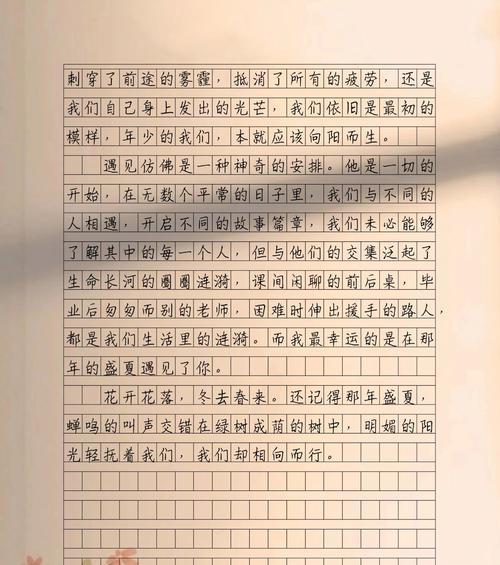 刺穿了前途的雾霾，抵消了所有的疲劳，还是
我们自己身上发出的光芒，我们依旧是最初的
模样，年少的我们，本就应该向阳而生。
遇见仿佛是一种神奇的安排。他是一切的
开始，在无数个平常的日子里，我们与不同的
人相遇，开启不同的故事篇章，我们未必能够
了解其中的每一个人，但与他们的交集泛起了
生命长河的圈圈涟漪，课间闲聊的前后桌，毕
业后匆匆而别的老师，困难时伸出援手的路人，
都是我们生活里的涟漪。而我最幸运的是在那
年的盛夏遇见了你。
花开花落，冬去春来。还记得那年盛夏，
蝉鸣的叫声交错在绿树成荫的树中，明媚的阳
光轻抚着我们，我们却相向而行。